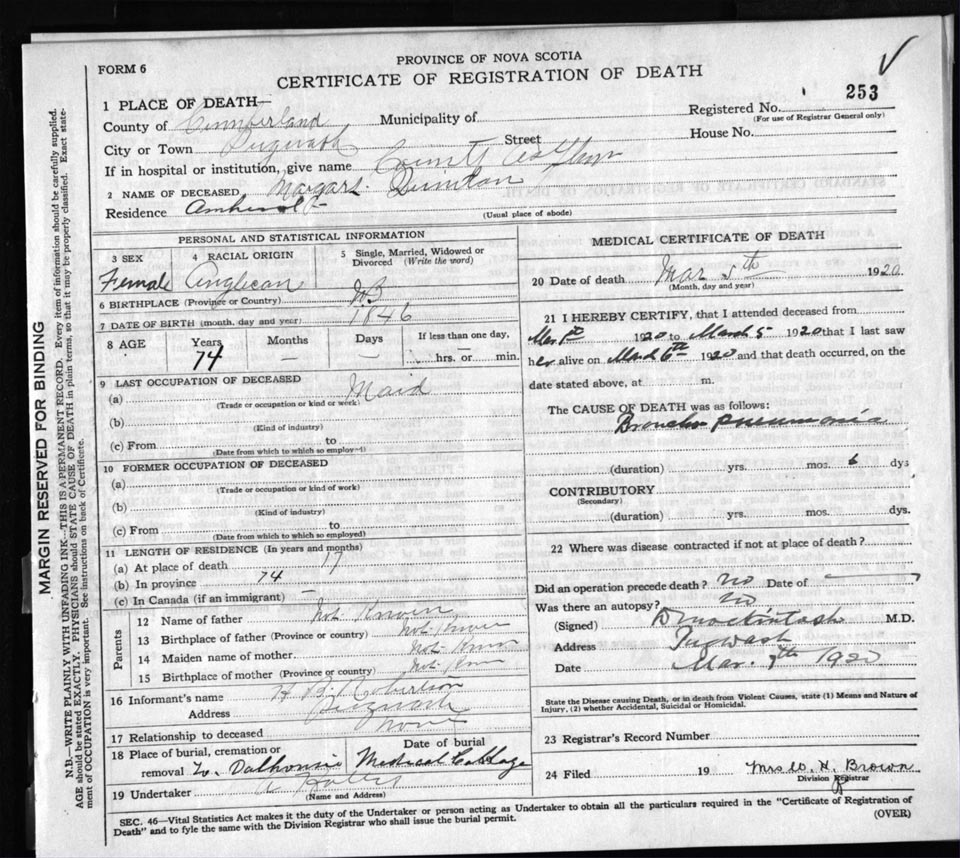 PROVINCE OF NOVA SCOTIA
FORM 6
CERTIFICATE OF REGISTRATION OF DEATH
253
1 PLACE OF DEATH—
Registered No.
(For use of Registrar General only)
County of Cumberland Municipality of
City or Town Pugwash Street House No.
If in hospital or institution, give name County
2 NAME OF DECEASED
Residence Amherst
(Usual place of abode)
PERSONAL AND STATISTICAL INFORMATION
3 SEX 4 RACIAL ORIGIN 5 Single, Married, Widowed or Divorced (Write the word)
Female Anglican
6 BIRTHPLACE (Province or Country) N.B.
7 DATE OF BIRTH (month, day and year) 1846
8 AGE Years Months Days If less than one day,
74 — — hrs. or min.
9 LAST OCCUPATION OF DECEASED
(a) Maid
(Trade or occupation or kind or work)
(b)
(Kind of industry)
(c) From to
(Date from which to which so employed)
10 FORMER OCCUPATION OF DECEASED
(a)
(Trade or occupation or kind of work)
(b)
(Kind of industry)
(c) From to
(Date from which to which so employed)
11 LENGTH OF RESIDENCE (In years and months)
(a) At place of death 17
(b) In province 74
(c) In Canada (if an immigrant) —
Parents
12 Name of father Not Known
13 Birthplace of father (Province or country) Not Known
14 Maiden name of mother Not Known
15 Birthplace of mother (Province or country) Not Known
16 Informant's name
Address Pugwash
17 Relationship to deceased none
18 Place of burial, cremation or Date of burial
removal To Dalhousie Medical College
19 Undertaker
(Name and Address)
MEDICAL CERTIFICATE OF DEATH
20 Date of death Mar 5th 1920
(Month, day and year)
21 I HEREBY CERTIFY, that I attended deceased from
Mar 1st 1920 to March 5 1920 that I last saw
her alive on March 1920 and that death occurred, on the
date stated above, at m.
The CAUSE OF DEATH was as follows:
Broncho pneumonia
(duration) yrs. mos. 6 dys
CONTRIBUTORY
(Secondary)
(duration) yrs. mos. dys.
22 Where was disease contracted if not at place of death?
Did an operation precede death? No Date of —
Was there an autopsy? No
(Signed) D Mackintosh M.D.
Address Pugwash
Date Mar. 7th 1920
State the Disease causing Death, or in death from Violent Causes, state (1) Means and Nature of
Injury, (2) whether Accidental, Suicidal or Homicidal.
23 Registrar's Record Number
24 Filed 19 Mrs W. H. Brown
Division Registrar
SEC. 46—Vital Statistics Act makes it the duty of the Undertaker or person acting as Undertaker to obtain all the particulars required in the "Certificate of Registration of
Death" and to fyle the same with the Division Registrar who shall issue the burial permit.
(OVER)
MARGIN RESERVED FOR BINDING
N.B.—WRITE PLAINLY WITH UNFADING INK—THIS IS A PERMANENT RECORD. Every item of information should be carefully supplied.
AGE should be stated EXACTLY. PHYSICIANS should STATE CAUSE OF DEATH in plain terms, so that it may be properly classified. Exact state-
ment of OCCUPATION is very important. See instructions on back of Certificate.